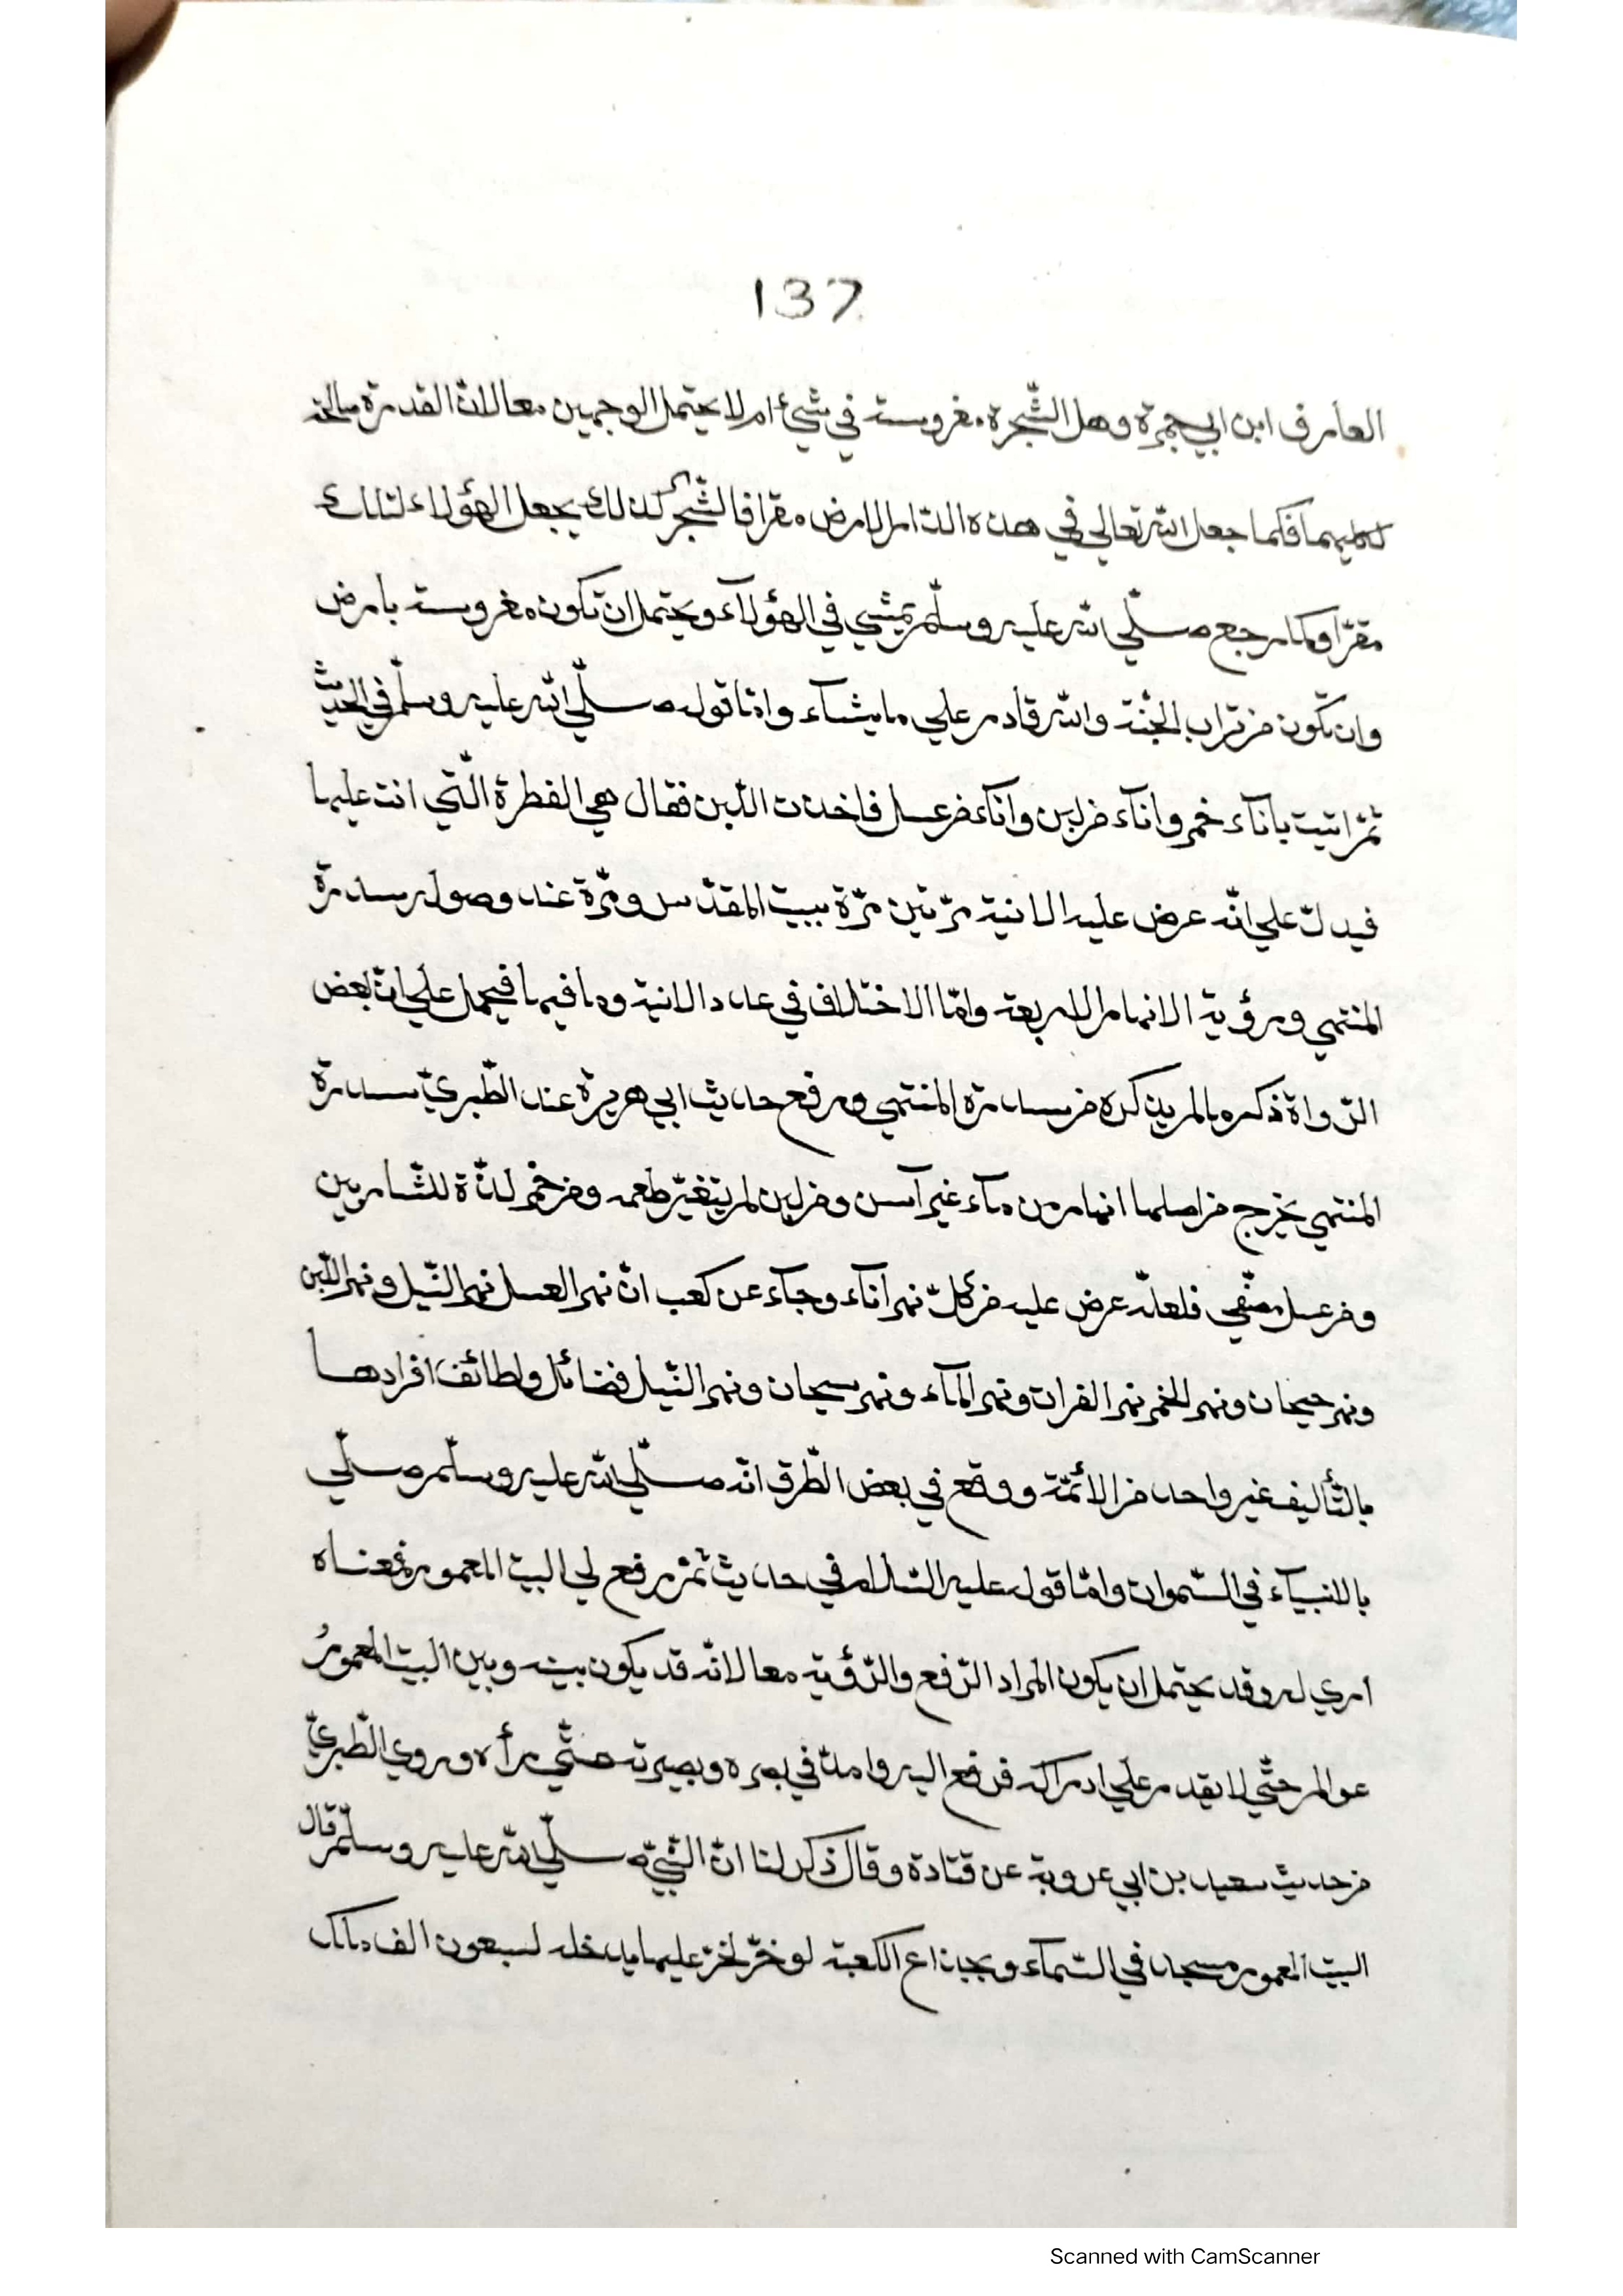 137
العارف ابن ابي جمرة وهل الشّجرة مغروسة في شيئ ام لا يحتمل الوجهين معا لانّ القدرة صالحة
لكليهما فكما جعل الله تعالي في هذه الدّار الارض مقرا فالشّجر كذلك يجعل الهؤلاء لتلك
مقرّا وكما رجع صلّي الله عليه وسلّم يمشي في الهؤلآء ويحتمل ان تكون مغروسة بارض
وان تكون من تراب الجنّة والله قادر علي ما يشآء وامّا قوله صلّي الله عليه وسلّم في الحديث
ثمّ اتيت باناآء خمر واناآء من لبن واناآء من عسل فاخذت اللّبن فقال هي الفطرة الّتي انت عليها
فيدلّ علي انّه عرض عليه الانية مرّتين مرّة ببيت المقدّس ومرّة عند وصوله سدرة
المنتهي ورؤية الانهار الاربعة وامّا الاختلاف في عدد الانية وما فيها فيحمل علي انّ بعض
الرّواة ذكر ما لم يذكره من سدرة المنتهي ورفع حديث ابي هريرة عند الطّبريّ سدرة
المنتهي يخرج من اصلها انهار من مآء غير آسن ومن لبن لم يتغيّر طعمه ومن خمر لذّة للشّاربين
ومن عسل مصفّي فلعلّه عرض عليه من كلّ نهر اناآء وجآء عن كعب انّ نهر العسل نهر النّيل ونهر اللّبن
ونهر جيحان ونهر الخمر نهر الفرات ونهر المآء ونهر سيحان ونهر النّيل فضائل ولطائف افرادها
بالتّأليف غير واحد من الائمّة ووقع في بعض الطّرق انّه صلّي الله عليه وسلّم صلّي
بالانبيآء في السّموات وامّا قوله عليه السّلام في حديث ثمّ رفع لي البيت المعمور فمعناه
اري له وقد يحتمل ان يكون المراد الرّفع والرّؤية معا لانّه قد يكون بينه وبين البيت المعمورُ
عوالم حتّي لا يقدر علي ادراكه فرفع اليه وامدّ في بصره وبصيرته حتّي رأه وروي الطّبريّ
من حديث سعيد بن ابي عروبة عن قتادة وقال ذكر لنا انّ النّبيّ صلّي الله عليه وسلّم قال
البيت المعمور مسجد في السّمآء وبحذاء الكعبة لو خرّ لخرّ عليها يدخله لسبعون الف ملك
Scanned with CamScanner